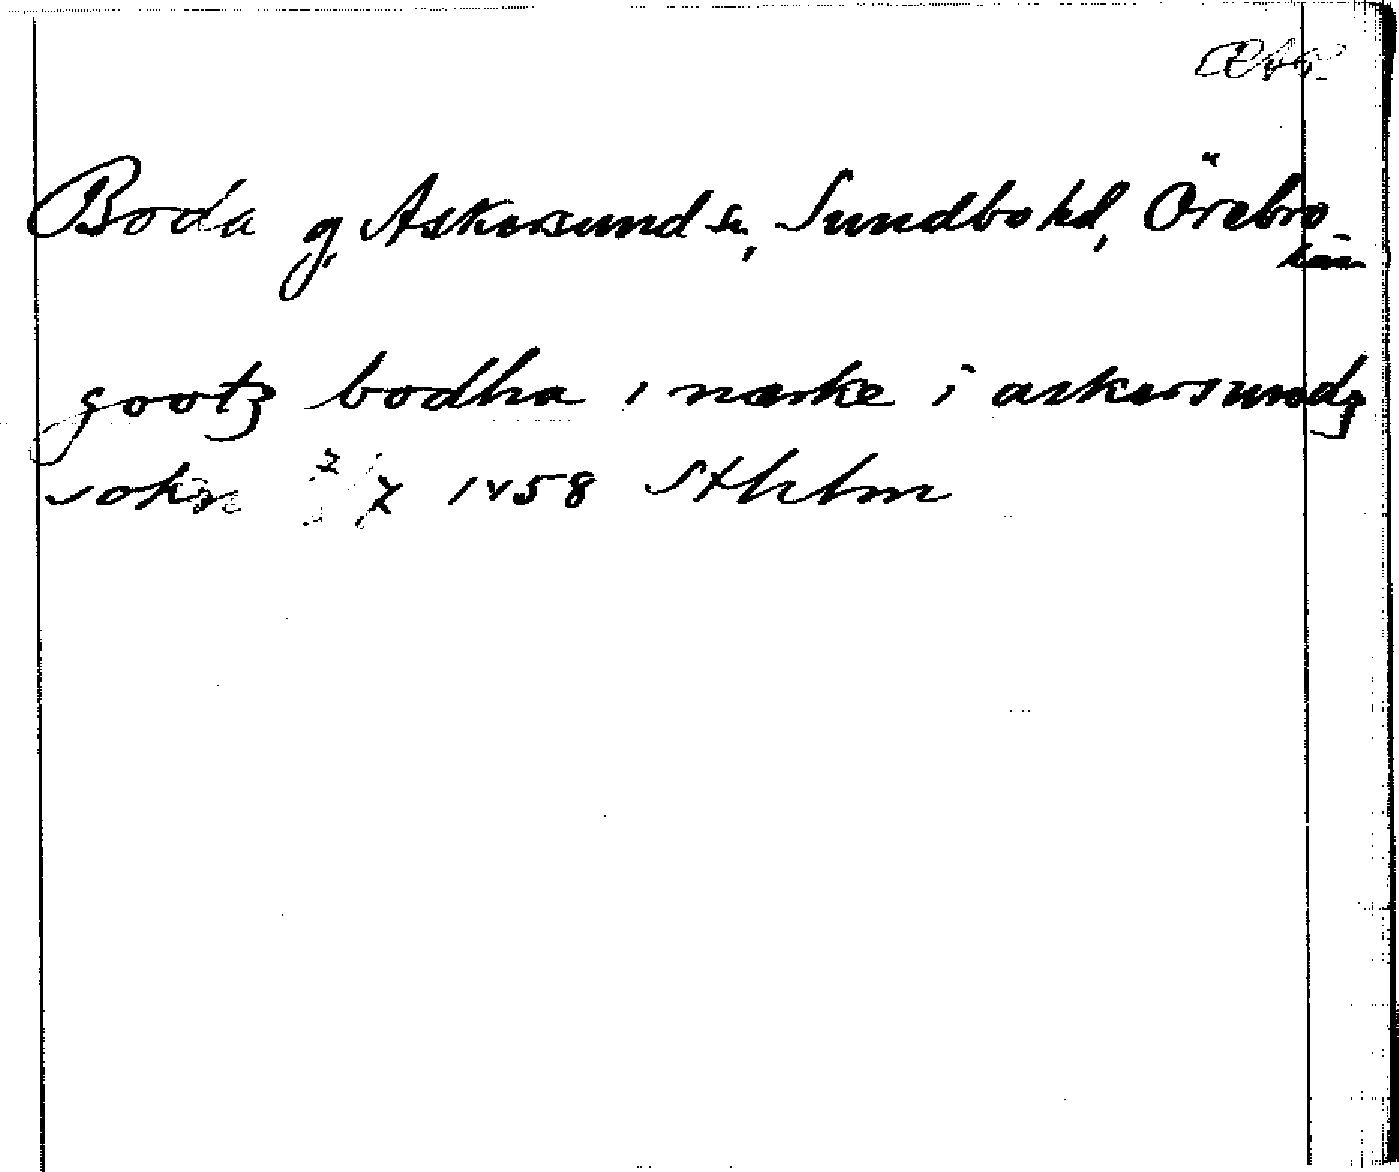 Boda g, Askersund sn, Sundbo hd, Örebro
län
gootz bodha i nærke i askersundz
sokn 2/7 1458 Sthlm